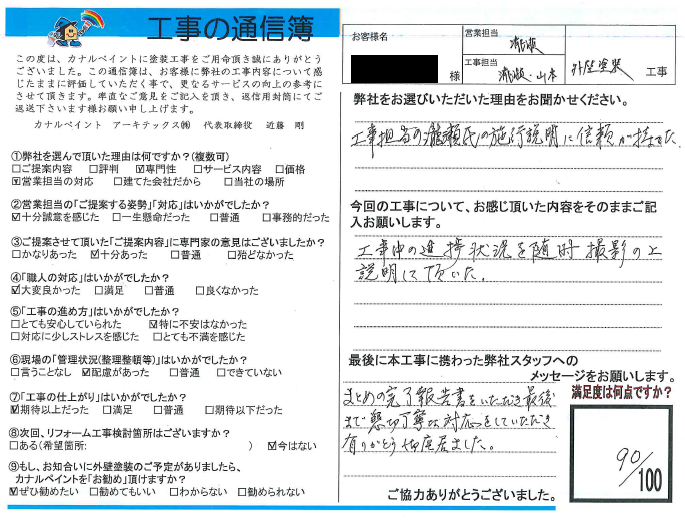 工事の通信簿
この度は、カナルペイントに塗装工事をご用命頂き誠にありがとう
ございました。この通信簿は、お客様に弊社の工事内容について感
じたままに評価していただく事で、更なるサービスの向上の参考に
させて頂きます。率直なご意見をご記入を頂き、返信用封筒にてご
返送下さいます様お願い申し上げます。
カナルペイント アーキテックス㈱ 代表取締役 近藤 剛
①弊社を選んで頂いた理由は何ですか?(複数可)
□ご提案内容 □評判 ☑専門性 □サービス内容 □価格
☑営業担当の対応 □建てた会社だから □当社の場所
②営業担当の「ご提案する姿勢」「対応」はいかがでしたか?
☑十分誠意を感じた □一生懸命だった □普通 □事務的だった
③ご提案させて頂いた「ご提案内容」に専門家の意見はございましたか?
□かなりあった ☑十分あった □普通 □殆どなかった
④「職人の対応」はいかがでしたか?
☑大変良かった □満足 □普通 □良くなかった
⑤「工事の進め方」はいかがでしたか?
□とても安心していられた ☑特に不安はなかった
□対応に少しストレスを感じた □とても不満を感じた
⑥現場の「管理状況(整理整頓等)」はいかがでしたか?
□言うことなし ☑配慮があった □普通 □できていない
⑦「工事の仕上がり」はいかがでしたか?
☑期待以上だった □満足 □普通 □期待以下だった
⑧次回、リフォーム工事検討箇所はございますか?
□ある(希望箇所: ) ☑今はない
⑨もし、お知合いに外壁塗装のご予定がありましたら、
カナルペイントを「お勧め」頂けますか?
☑ぜひ勧めたい □勧めてもいい □わからない □勧められない
お客様名
様
営業担当
瀧瀬
工事担当
瀧瀬・山本
外壁塗装 工事
弊社をお選びいただいた理由をお聞かせください。
工事担当の瀧瀬氏の施行説明に信頼が持てた
今回の工事について、お感じ頂いた内容をそのままご記
入お願いします。
工事中の進捗状況を随時撮影の上
説明して頂いた.
最後に本工事に携わった弊社スタッフへの
メッセージをお願いします。
まとめの完了報告書をいただき最後
まで懇切丁寧な対応をしていただき
有りがとう御座居ました。
満足度は何点ですか?
90/100
ご協力ありがとうございました。